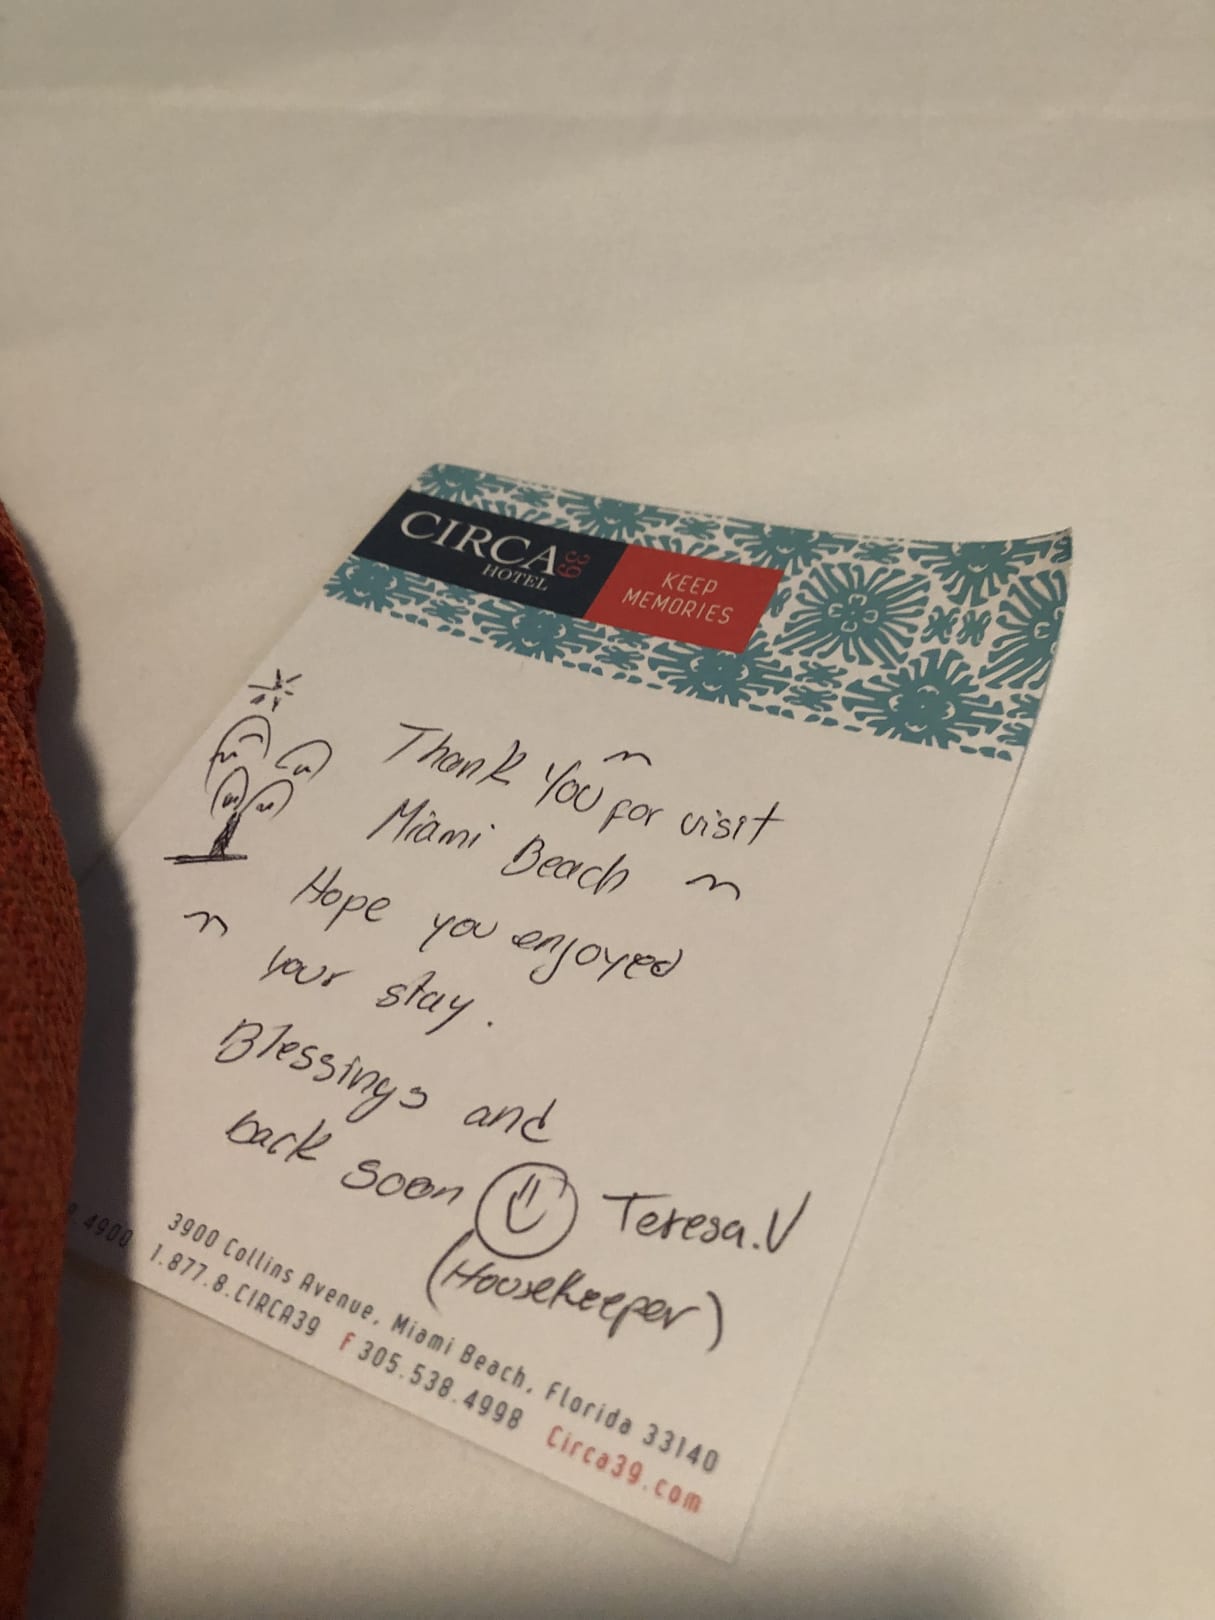 CIRCA 39
HOTEL
KEEP
MEMORIES
Thank You for visit
Miami Beach
Hope you enjoyed
your stay.
Blessings and
back soon Teresa.V
(Housekeeper)
3900 Collins Avenue, Miami Beach, Florida 33140
.4900 1.877.8.CIRCA39 F 305.538.4998 Circa39.com